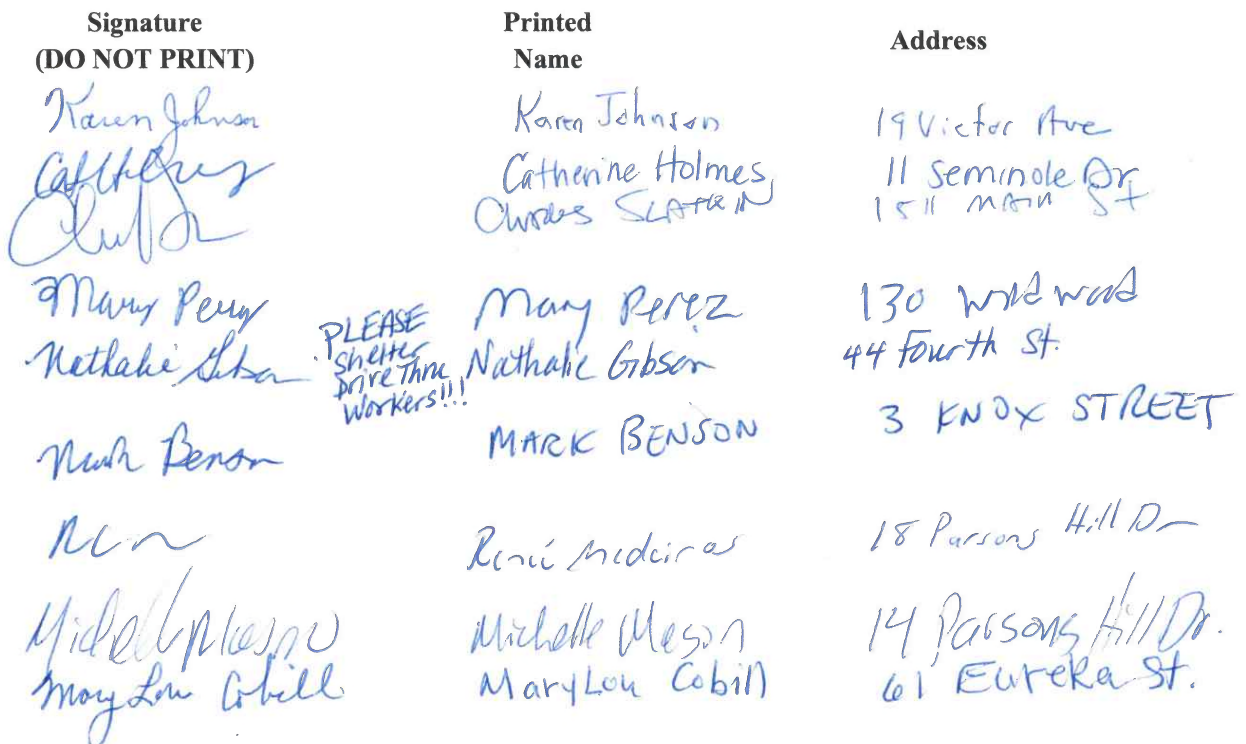 Signature
(DO NOT PRINT)
Printed
Name
Address
Karen Johnson Karen Johnson 19 Victor Ave
Catherine Holmes 11 Seminole Dr
Charles SLATKIN 1511 MAIN St
Mary Perez Mary Perez 130 Wildwood
Nathalie Gibson Nathalie Gibson 44 Fourth St.
PLEASE
Shelter
Drive Thru
Workers!!!
Mark Benson MARK BENSON 3 KNOX STREET
René Medeiros 18 Parsons Hill Dr
Michelle Mason Michelle Mason 14 Parsons Hill Dr.
Mary Lou Cobill MaryLou Cobill 61 Eureka St.